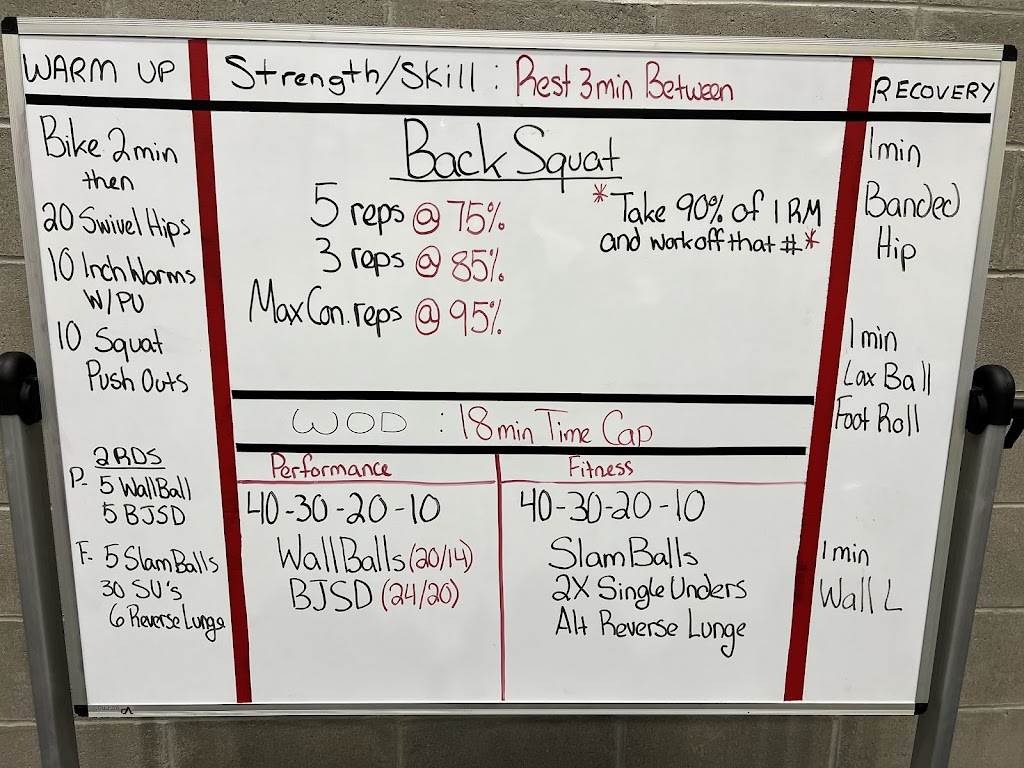 WARM UP
Bike 2min
then
20 Swivel Hips
10 Inch Worms
W/PU
10 Squat
Push Outs
2RDS
P- 5 WallBall
5 BJSD
F- 5 SlamBalls
30 SU's
6 Reverse Lunge
Strength/Skill : Rest 3min Between
Back Squat
5 reps @ 75%
3 reps @ 85%
Max Con. reps @ 95%
*Take 90% of 1RM
and work off that #*
WOD : 18min Time Cap
Performance
40-30-20-10
WallBalls (20/14)
BJSD (24/20)
Fitness
40-30-20-10
SlamBalls
2X Single Unders
Alt Reverse Lunge
RECOVERY
1min
Banded
Hip
1min
Lax Ball
Foot Roll
1min
Wall L